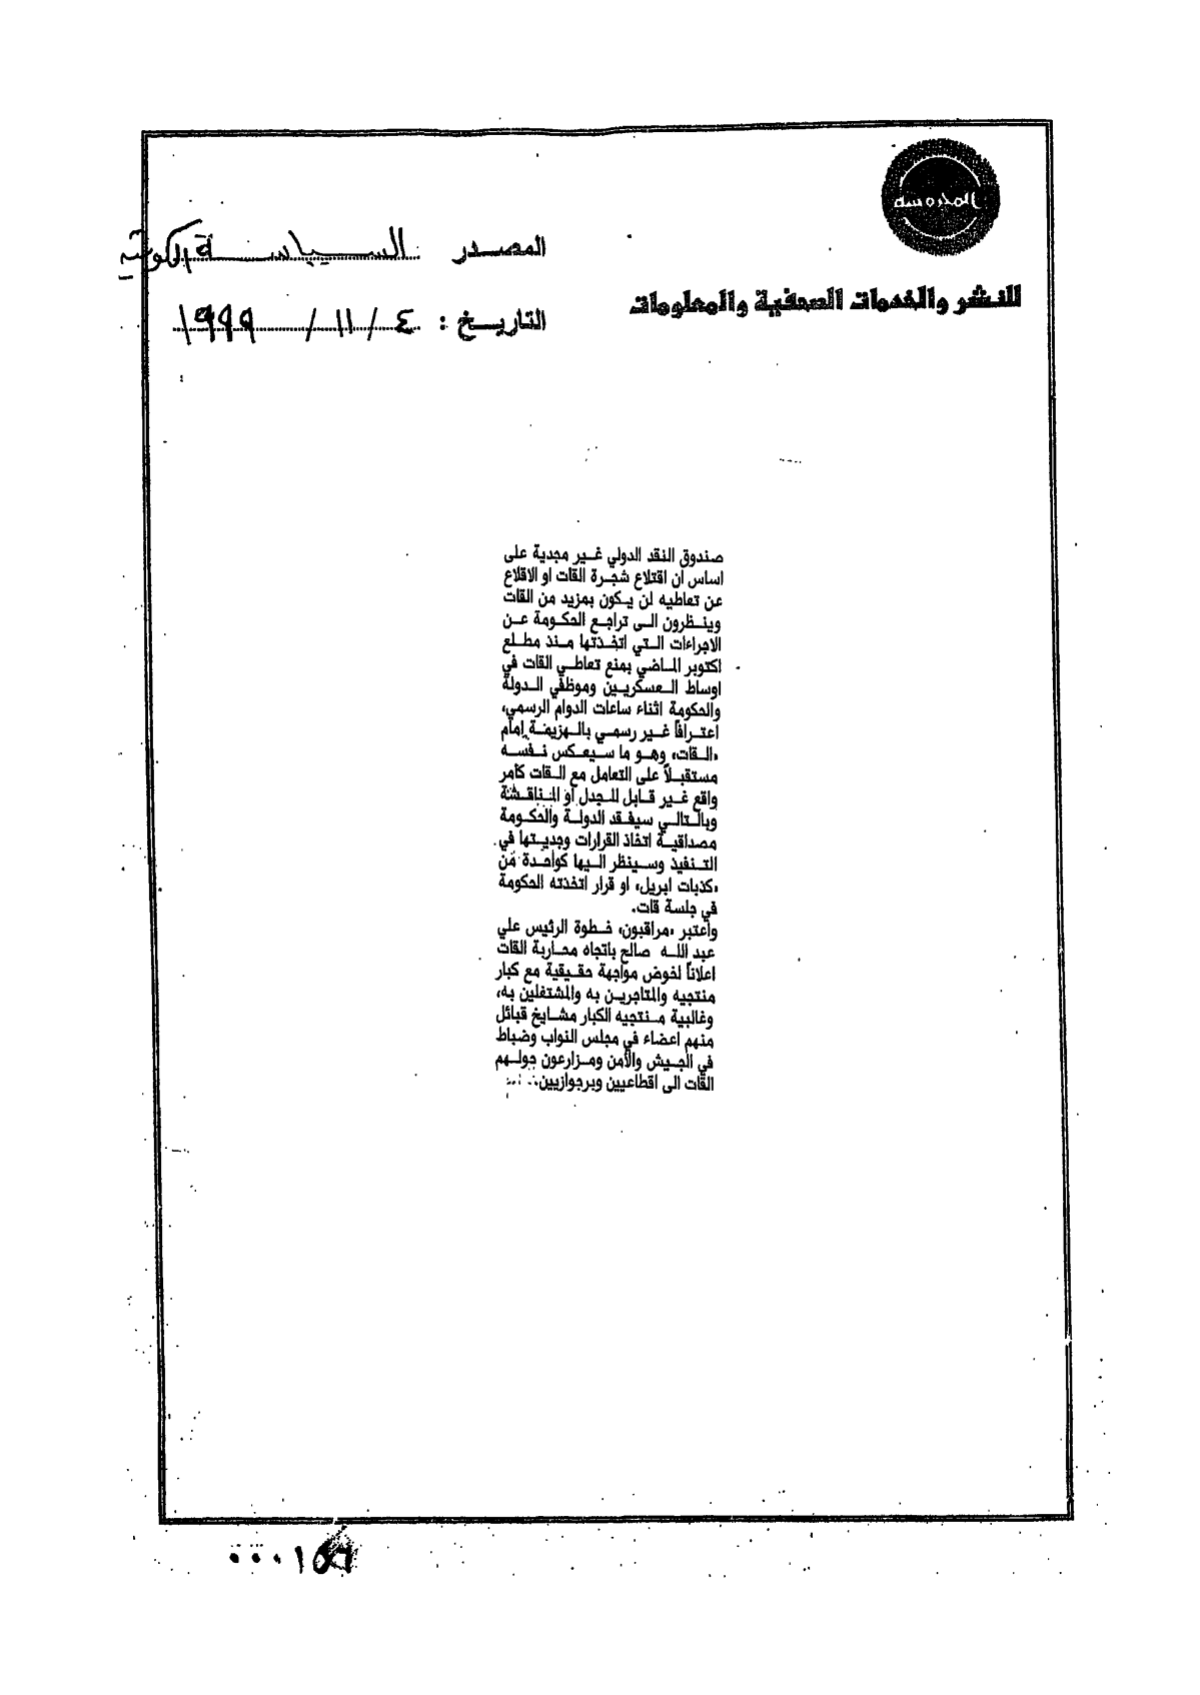 المحروسة
للنشر والخدمات الصحفية والمعلومات
المصدر السياسة الكويتية
التاريخ : ٤ / ١١ / ١٩٩٩
صندوق النقد الدولي غير مجدية على
اساس ان اقتلاع شجرة القات او الاقلاع
عن تعاطيه لن يكون بمزيد من القات
وينظرون الى تراجع الحكومة عن
الاجراءات التي اتخذتها منذ مطلع
اكتوبر الماضي بمنع تعاطي القات في
اوساط العسكريين وموظفي الدولة
والحكومة اثناء ساعات الدوام الرسمي،
اعترافاً غير رسمي بالهزيمة إمام
«القات» وهو ما سيعكس نفسه
مستقبلاً على التعامل مع القات كامر
واقع غير قابل للجدل او المناقشة
وبالتالي سيفقد الدولة والحكومة
مصداقية اتخاذ القرارات وجديتها في
التنفيذ وسينظر اليها كواحدة من
«كذبات ابريل» او قرار اتخذته الحكومة
في جلسة قات.
واعتبر «مراقبون» خطوة الرئيس علي
عبد الله صالح باتجاه محاربة القات
اعلاناً لخوض مواجهة حقيقية مع كبار
منتجيه والمتاجرين به والمشتغلين به،
وغالبية منتجيه الكبار مشايخ قبائل
منهم اعضاء في مجلس النواب وضباط
في الجيش والأمن ومزارعون حولهم
القات الى اقطاعيين وبرجوازيين.